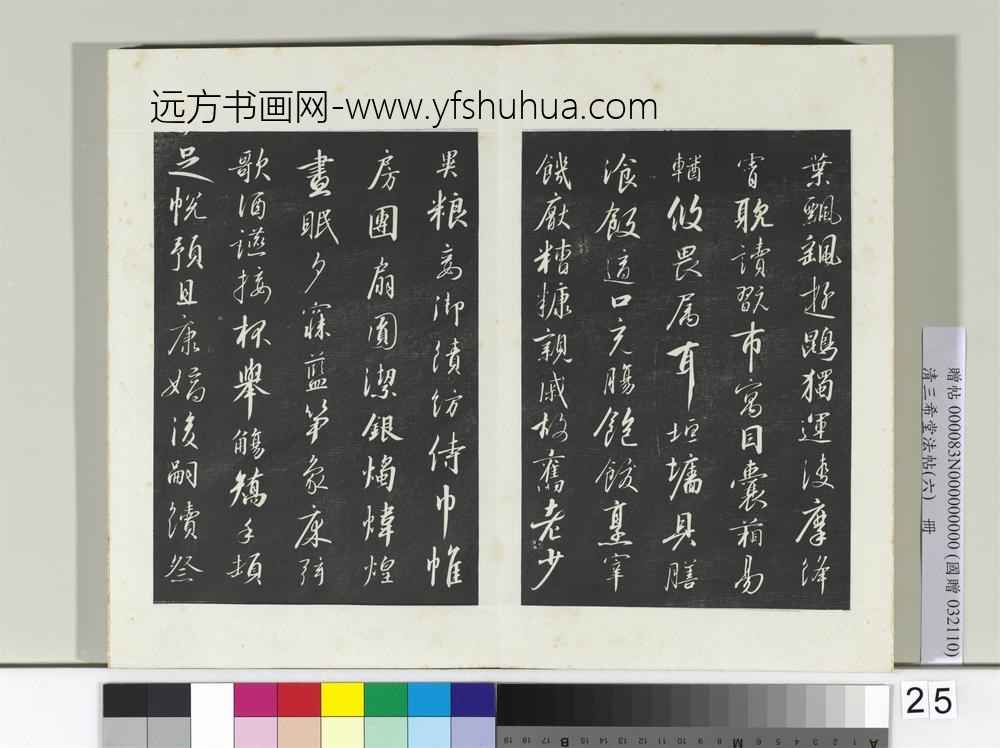 远方书画网-www.yfshuhua.com
葉飄飖遊鵾獨運凌摩絳
霄耽讀翫市寓目囊箱易
輶攸畏属耳垣墻具膳
湌飯適口充腸飽飫烹宰
饑厭糟糠親戚故舊老少
異粮妾御績紡侍巾帷
房團扇圓潔銀燭煒煌
晝眠夕寐藍笋象床弦
歌酒讌接杯舉觴矯手頓
足悅預且康嫡後嗣續祭
贈帖 000083N000000000 (國贈 032110)
清三希堂法帖(六) 冊
25